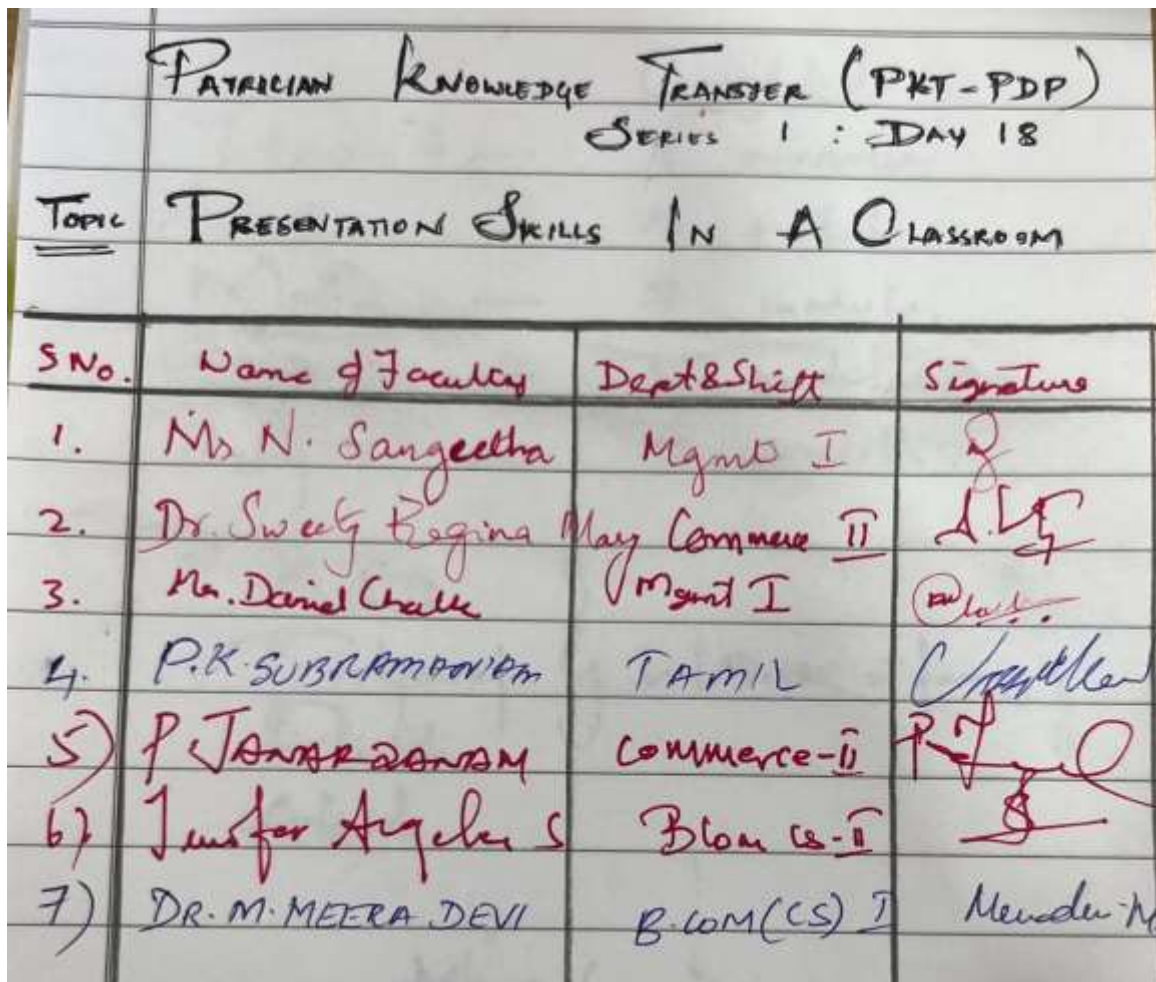 PATRICIAN KNOWLEDGE TRANSFER (PKT-PDP)
SERIES 1 : DAY 18
TOPIC PRESENTATION SKILLS IN A CLASSROOM
S No. Name of Faculty Dept & Shift Signature
1. Ms N. Sangeetha Mgmt I
2. Dr. Sweety Regina Mary Commerce II
3. Mr. Daniel Mgmt I
4. P.K. SUBRAMANIAM TAMIL
5) P JANARDANAM Commerce-II
6) S BCom CS-II
7) DR. M. MEERA DEVI B.COM(CS) I